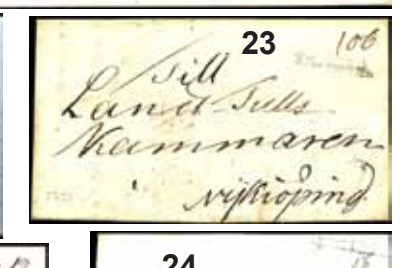 23
106
Till
Land Tulls
Kammaren
Nykiöping
24